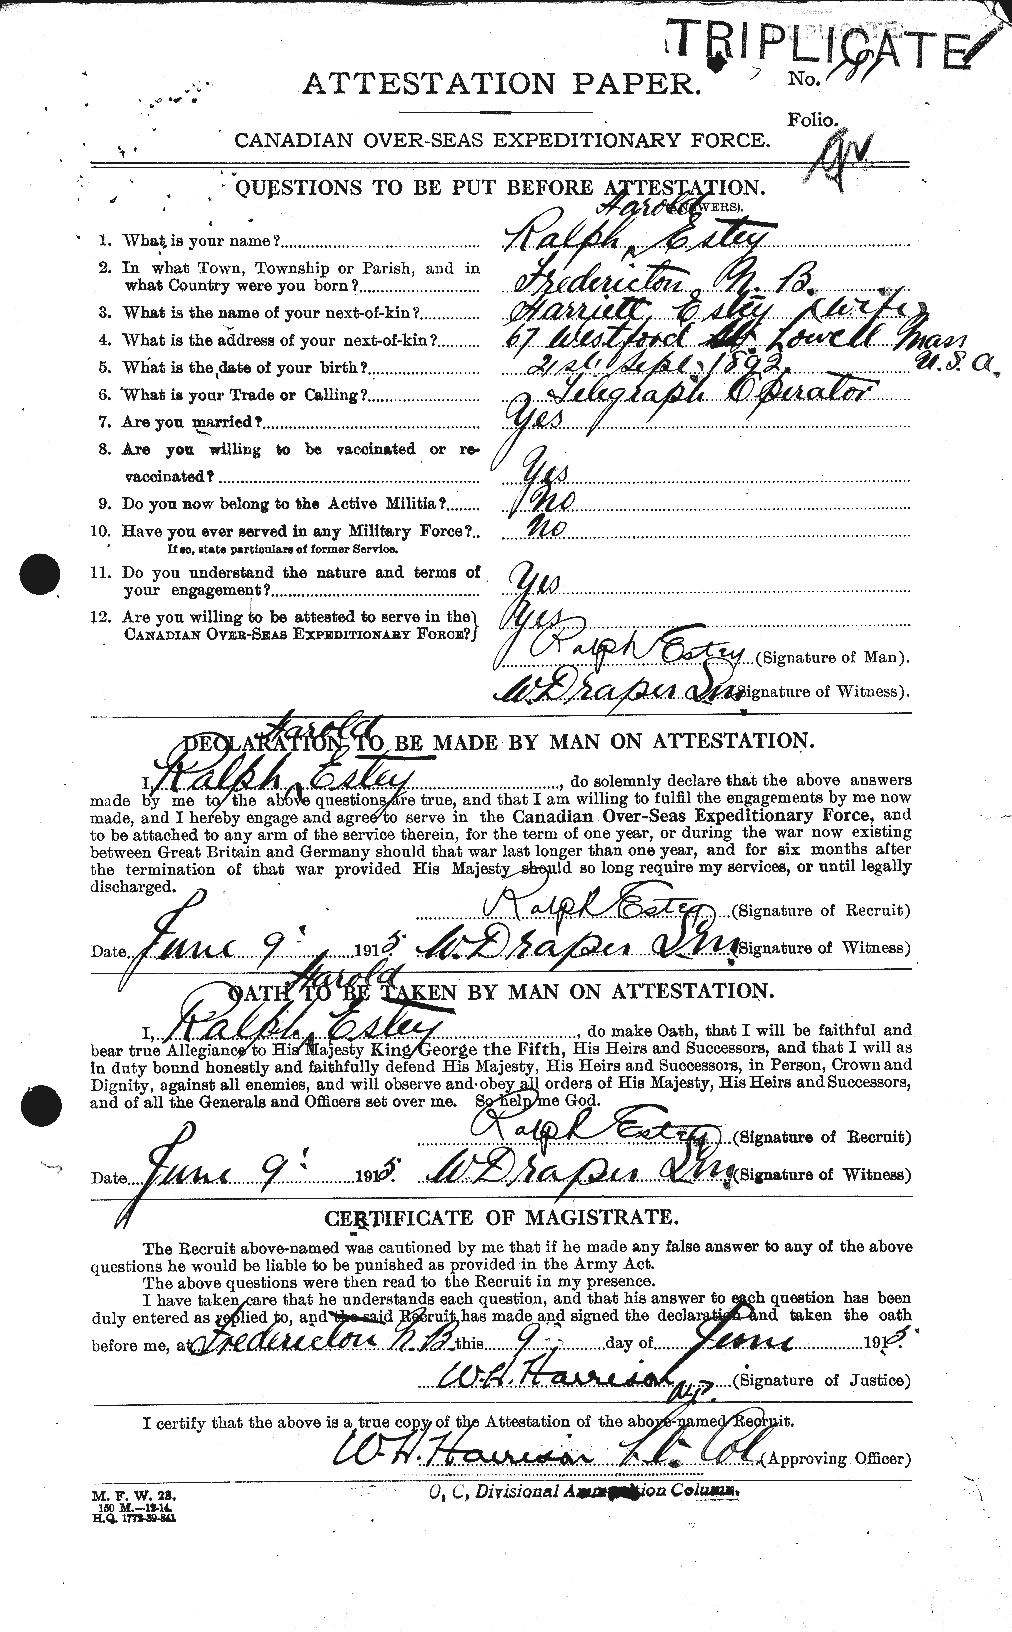 TRIPLICATE
ATTESTATION PAPER.
No.
Folio.
CANADIAN OVER-SEAS EXPEDITIONARY FORCE.
QUESTIONS TO BE PUT BEFORE ATTESTATION.
(ANSWERS).
Harold
1. What is your name? Ralph ^ Estey
2. In what Town, Township or Parish, and in
what Country were you born? Fredericton, N. B.
3. What is the name of your next-of-kin? Harriett Estey (wife)
4. What is the address of your next-of-kin? 67 Westford St. Lowell Mass
U.S.A.
5. What is the date of your birth? 21st Sept. 1892
6. What is your Trade or Calling? Telegraph Operator
7. Are you married? Yes
8. Are you willing to be vaccinated or re-
vaccinated? Yes
9. Do you now belong to the Active Militia? No
10. Have you ever served in any Military Force? No
If so, state particulars of former Service.
11. Do you understand the nature and terms of
your engagement? Yes
12. Are you willing to be attested to serve in the
CANADIAN OVER-SEAS EXPEDITIONARY FORCE? Yes
Ralph Estey (Signature of Man).
W Draper (Signature of Witness).
Harold
DECLARATION TO BE MADE BY MAN ON ATTESTATION.
I, Ralph ^ Estey, do solemnly declare that the above answers
made by me to the above questions are true, and that I am willing to fulfil the engagements by me now
made, and I hereby engage and agree to serve in the Canadian Over-Seas Expeditionary Force, and
to be attached to any arm of the service therein, for the term of one year, or during the war now existing
between Great Britain and Germany should that war last longer than one year, and for six months after
the termination of that war provided His Majesty should so long require my services, or until legally
discharged.
Ralph Estey (Signature of Recruit)
Date June 9 1915 W. Draper (Signature of Witness)
Harold
OATH TO BE TAKEN BY MAN ON ATTESTATION.
I, Ralph ^ Estey, do make Oath, that I will be faithful and
bear true Allegiance to His Majesty King George the Fifth, His Heirs and Successors, and that I will as
in duty bound honestly and faithfully defend His Majesty, His Heirs and Successors, in Person, Crown and
Dignity, against all enemies, and will observe and obey all orders of His Majesty, His Heirs and Successors,
and of all the Generals and Officers set over me. So help me God.
Ralph Estey (Signature of Recruit)
Date June 9 1915. W Draper (Signature of Witness)
CERTIFICATE OF MAGISTRATE.
The Recruit above-named was cautioned by me that if he made any false answer to any of the above
questions he would be liable to be punished as provided in the Army Act.
The above questions were then read to the Recruit in my presence.
I have taken care that he understands each question, and that his answer to each question has been
duly entered as replied to, and the said Recruit has made and signed the declaration and taken the oath
before me, at Fredericton N.B. this 9 day of June 1915.
W.H. Harrison (Signature of Justice)
I certify that the above is a true copy of the Attestation of the above-named Recruit.
W.H. Harrison Lt. Col. (Approving Officer)
O, C, Divisional Ammunition Column.
M. F. W. 23.
150 M.—12-14.
H.Q. 1772-39-841.